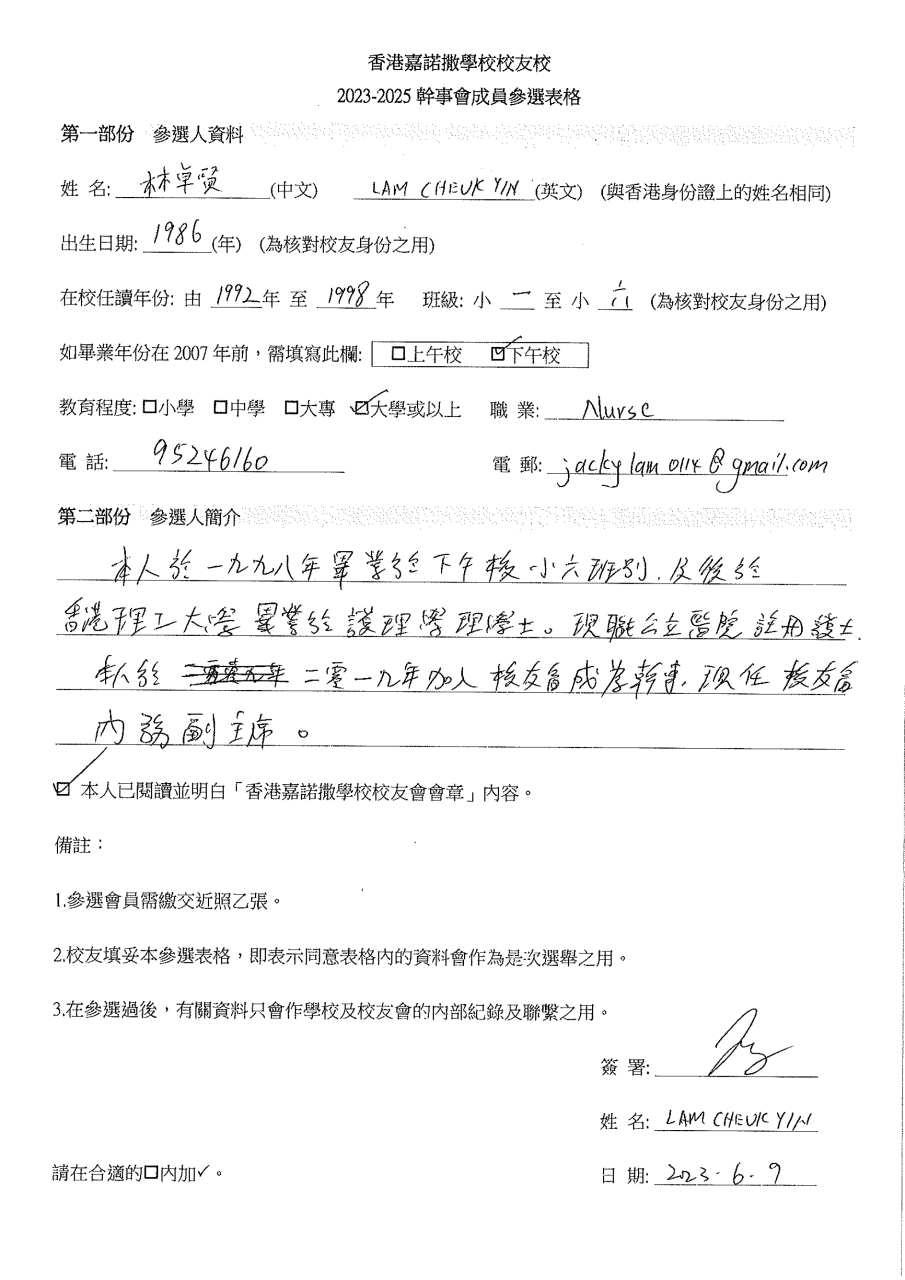 香港嘉諾撒學校校友校
2023-2025 幹事會成員參選表格
第一部份 參選人資料
姓 名: 林卓賢 (中文) LAM CHEUK YIN (英文) (與香港身份證上的姓名相同)
出生日期: 1986 (年) (為核對校友身份之用)
在校任讀年份: 由 1992 年 至 1998 年 班級: 小 一 至 小 六 (為核對校友身份之用)
如畢業年份在 2007 年前，需填寫此欄: □上午校 ☑下午校
教育程度: □小學 □中學 □大專 ☑大學或以上 職 業: Nurse
電 話: 95246160 電 郵: jackylam0114@gmail.com
第二部份 參選人簡介
本人於一九九八年畢業於下午校小六班別,及後於
香港理工大學畢業於護理學理學士。現職公立醫院註冊護士.
本人於 二零一九年加入校友會成為幹事,現任校友會
內務副主席。
☑ 本人已閱讀並明白「香港嘉諾撒學校校友會會章」內容。
備註：
1.參選會員需繳交近照乙張。
2.校友填妥本參選表格，即表示同意表格內的資料會作為是次選舉之用。
3.在參選過後，有關資料只會作學校及校友會的內部紀錄及聯繫之用。
簽 署:
姓 名: LAM CHEUK YIN
請在合適的□內加✓。 日 期: 2023-6-9